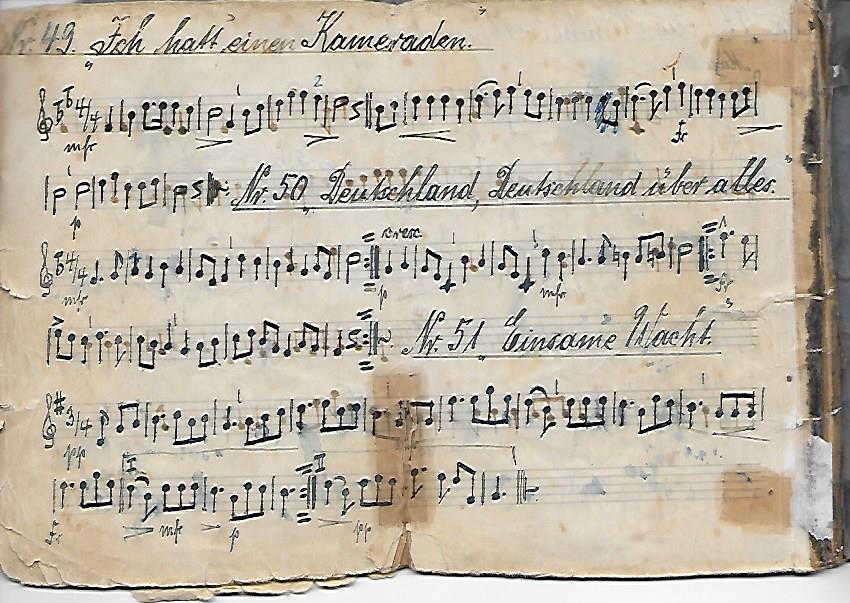 Nr. 49. „Ich hatt' einen Kameraden."
2
mfr
Fr
p
Nr. 50 „Deutschland, Deutschland über alles."
cresc
mfr
p
mfr
Fr
Nr. 51 „Einsame Wacht"
pp
I II
Fr mfr p pp